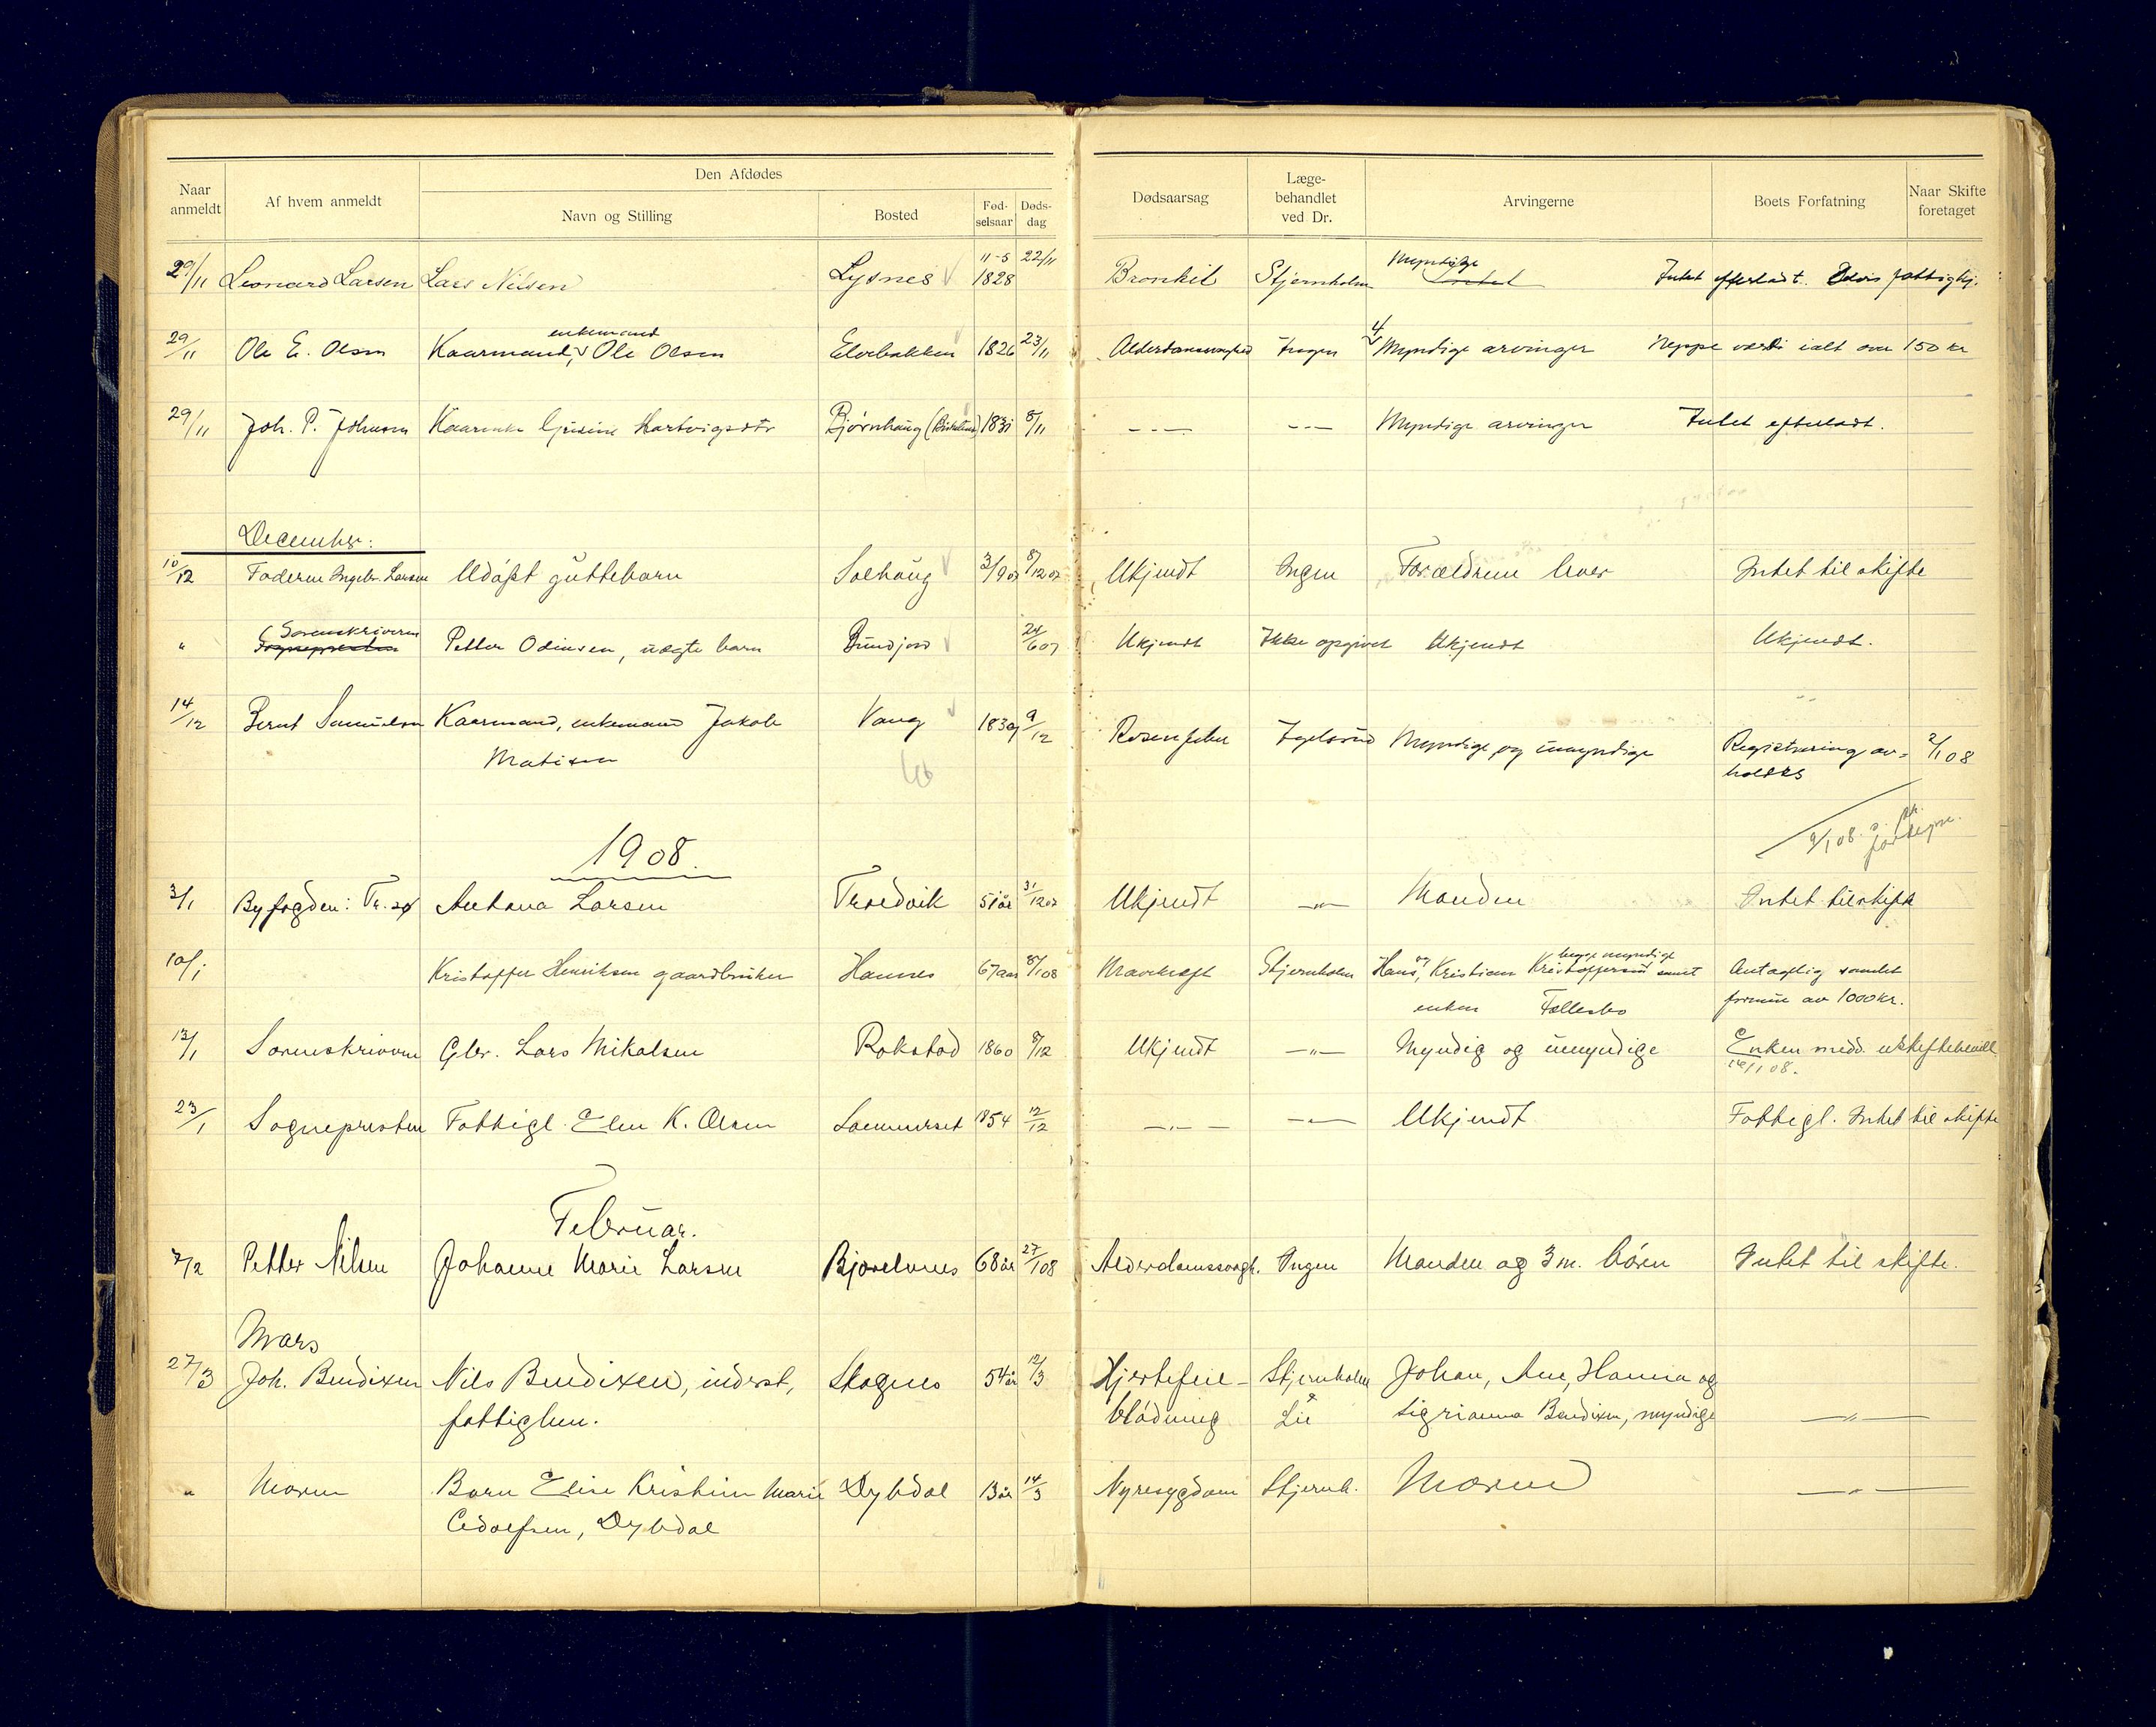 Naar anmeldt
Af hvem anmeldt
Den Afdødes
Navn og Stilling
Bosted
Fød-selsaar
Døds-dag
Dødsaarsag
Læge-behandlet ved Dr.
Arvingerne
Boets Forfatning
Naar Skifte foretaget
29/11 Leonard Larsen Lars Nilsen Lysnes 11-5 1828 22/11 Bronkit Stjernholm Myndige Intet efterladt. fattighj.
29/11 Ole E. Olsen Kaarmand, enkemand Ole Olsen Elvebakken 1826 23/11 Alderdomssvaghed Ingen 4 Myndige arvinger Neppe værdi ialt over 150 kr
29/11 Joh. P. Johnsen Kaarenke Hartvigsdtr Bjørnhaug 1831 8/11 -"- -"- Myndige arvinger Intet efterladt.
December:
10/12 Faderen Ingebr. Larsen Udøpt guttebarn Solhaug 3/9 07 8/12 07 Ukjendt Ingen Forældrene lever Intet til skifte
" Sorenskriveren Sognepresten Petter Odinsen, uægte barn Bundjord 24/6 07 Ukjendt Ikke opgivet Ukjendt Ukjendt.
14/12 Bernt Samuelsen Kaarmand, enkemand Jakob Vang 1839 9/12 Rosenfeber Myndige og umyndige Registrering av- 2/1 08
Matisen holdes
9/1 08.
1908.
3/1 Byfogden: Tr.sø Antona Larsen Trædvik 51 år 31/12 07 Ukjendt -"- Manden Intet til skifte
10/1 Kristoffer Henriksen gaardbruker Hannes 67 aar 8/1 08 Mavekræft Stjernholm Hans og Kristian Kristoffersen begge myndige samt Antagelig samlet
enken Fællesbo formue av 1000 kr.
13/1 Sorenskriveren Gbr. Lars Mikalsen Rokstad 1860 8/12 Ukjendt -"- Myndig og umyndige Enken medd. uskiftebevill
1/1 08.
23/1 Sognepresten Fattigl. Elen K. Olsen Sommerset 1854 12/12 -"- -"- Ukjendt Fattigl. Intet til skifte
Februar.
7/2 Petter Nilsen Johanne Marie Larsen Bjorelvnes 68 år 27/1 08 Alderdomssvagh. Ingen Manden og 3 m. børn Intet til skifte.
Mars
27/3 Joh. Bendixen Nils Bendixen, inderst, Skognes 54 år 12/3 Hjertefeil- Stjernholm Johan, Ane, Hanna og
fattiglem. blødning & Lie Sigrianna Bendixen, myndige -"-
" Moren Barn Elise Kristine Marie Dybdal 13 år 14/3 Nyresygdom Stjernh. Moren -"-
Edolfsen, Dybdal